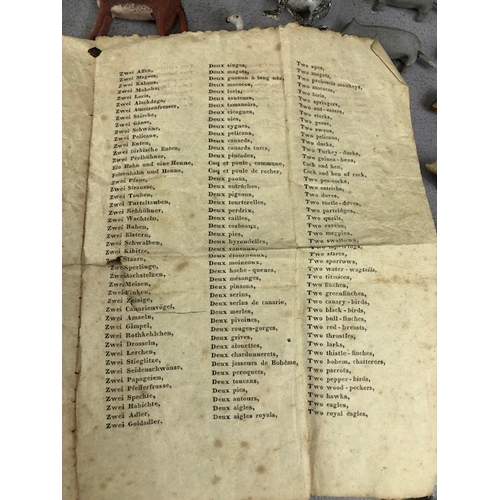 Zwei Affen, Deux singes, Two apes,
Zwei Magots, Deux magots, Two magots,
Zwei Kahaus, Deux guenon à long nez, Two proboscis monkeys,
Zwei Mokoko, Deux mococos, Two mococos,
Zwei Loris, Deux loris, Two loris,
Zwei Alackdaga, Deux sauteurs, Two springers,
Zwei Ameisenfresser, Deux tamanoirs, Two ant-eaters,
Zwei Störche, Deux cicognes, Two storks,
Zwei Gänse, Deux oies, Two geese,
Zwei Schwäne, Deux cygnes, Two swans,
Zwei Pelicane, Deux pelicans, Two pelicans,
Zwei Enten, Deux canards, Two ducks,
Zwei türkische Enten, Deux canards turcs, Two Turkey-ducks,
Zwei Perlhühner, Deux pintades, Two guinea-hens,
Ein Hahn und eine Henne, Coq et poule, commune, Cock and hen,
Felsenhahn und Henne, Coq et poule de rocher, Cock and hen of rock,
Zwei Pfaue, Deux paons, Two pea-cocks,
Zwei Strausse, Deux autrûches, Two ostriches,
Zwei Tauben, Deux pigeons, Two doves,
Zwei Turteltauben, Deux tourterelles, Two turtle-doves,
Zwei Rebhühner, Deux perdrix, Two partridges,
Zwei Wachteln, Deux cailles, Two quails,
Zwei Raben, Deux corbeaux, Two ravens,
Zwei Elstern, Deux pies, Two magpies,
Zwei Schwalben, Deux hyrondelles, Two swallows,
Zwei Kibitze, Deux vaneaux, Two lapwings,
Zwei Staare, Deux étourneaux, Two stares,
Zwei Sperlinge, Deux moineaux, Two sparrows,
Zwei Bachstelzen, Deux hoche-queues, Two water-wagtails,
Zwei Meisen, Deux mésanges, Two titmices,
Zwei Finken, Deux pinsons, Two finches,
Zwei Zeisige, Deux serins, Two greenfinches,
Zwei Canarienvögel, Deux serins de canarie, Two canary-birds,
Zwei Amseln, Deux merles, Two black-birds,
Zwei Gimpel, Deux pivoines, Two bull-finches,
Zwei Rothkehlchen, Deux rouges-gorges, Two red-breasts,
Zwei Drosseln, Deux grives, Two throstles,
Zwei Lerchen, Deux alouettes, Two larks,
Zwei Stieglitze, Deux chardonnerets, Two thistle-finches,
Zwei Seidenschwänze, Deux jaseurs de Bohême, Two bohem. chatterers,
Zwei Papageien, Deux peroquets, Two parrots,
Zwei Pfefferfrasse, Deux toucans, Two pepper-birds,
Zwei Spechte, Deux pics, Two wood-peckers,
Zwei Habichte, Deux autours, Two hawks,
Zwei Adler, Deux aigles, Two eagles,
Zwei Goldadler, Deux aigles royals, Two royal eagles,